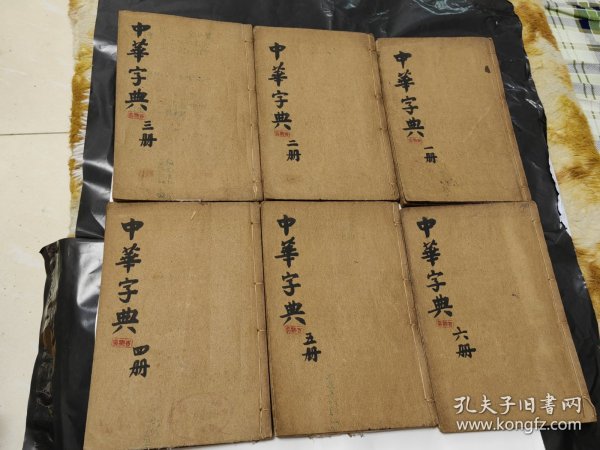 中華字典
三册
中華字典
二册
中華字典
一册
中華字典
四册
中華字典
五册
中華字典
六册
孔夫子旧書网
www.kongfz.com